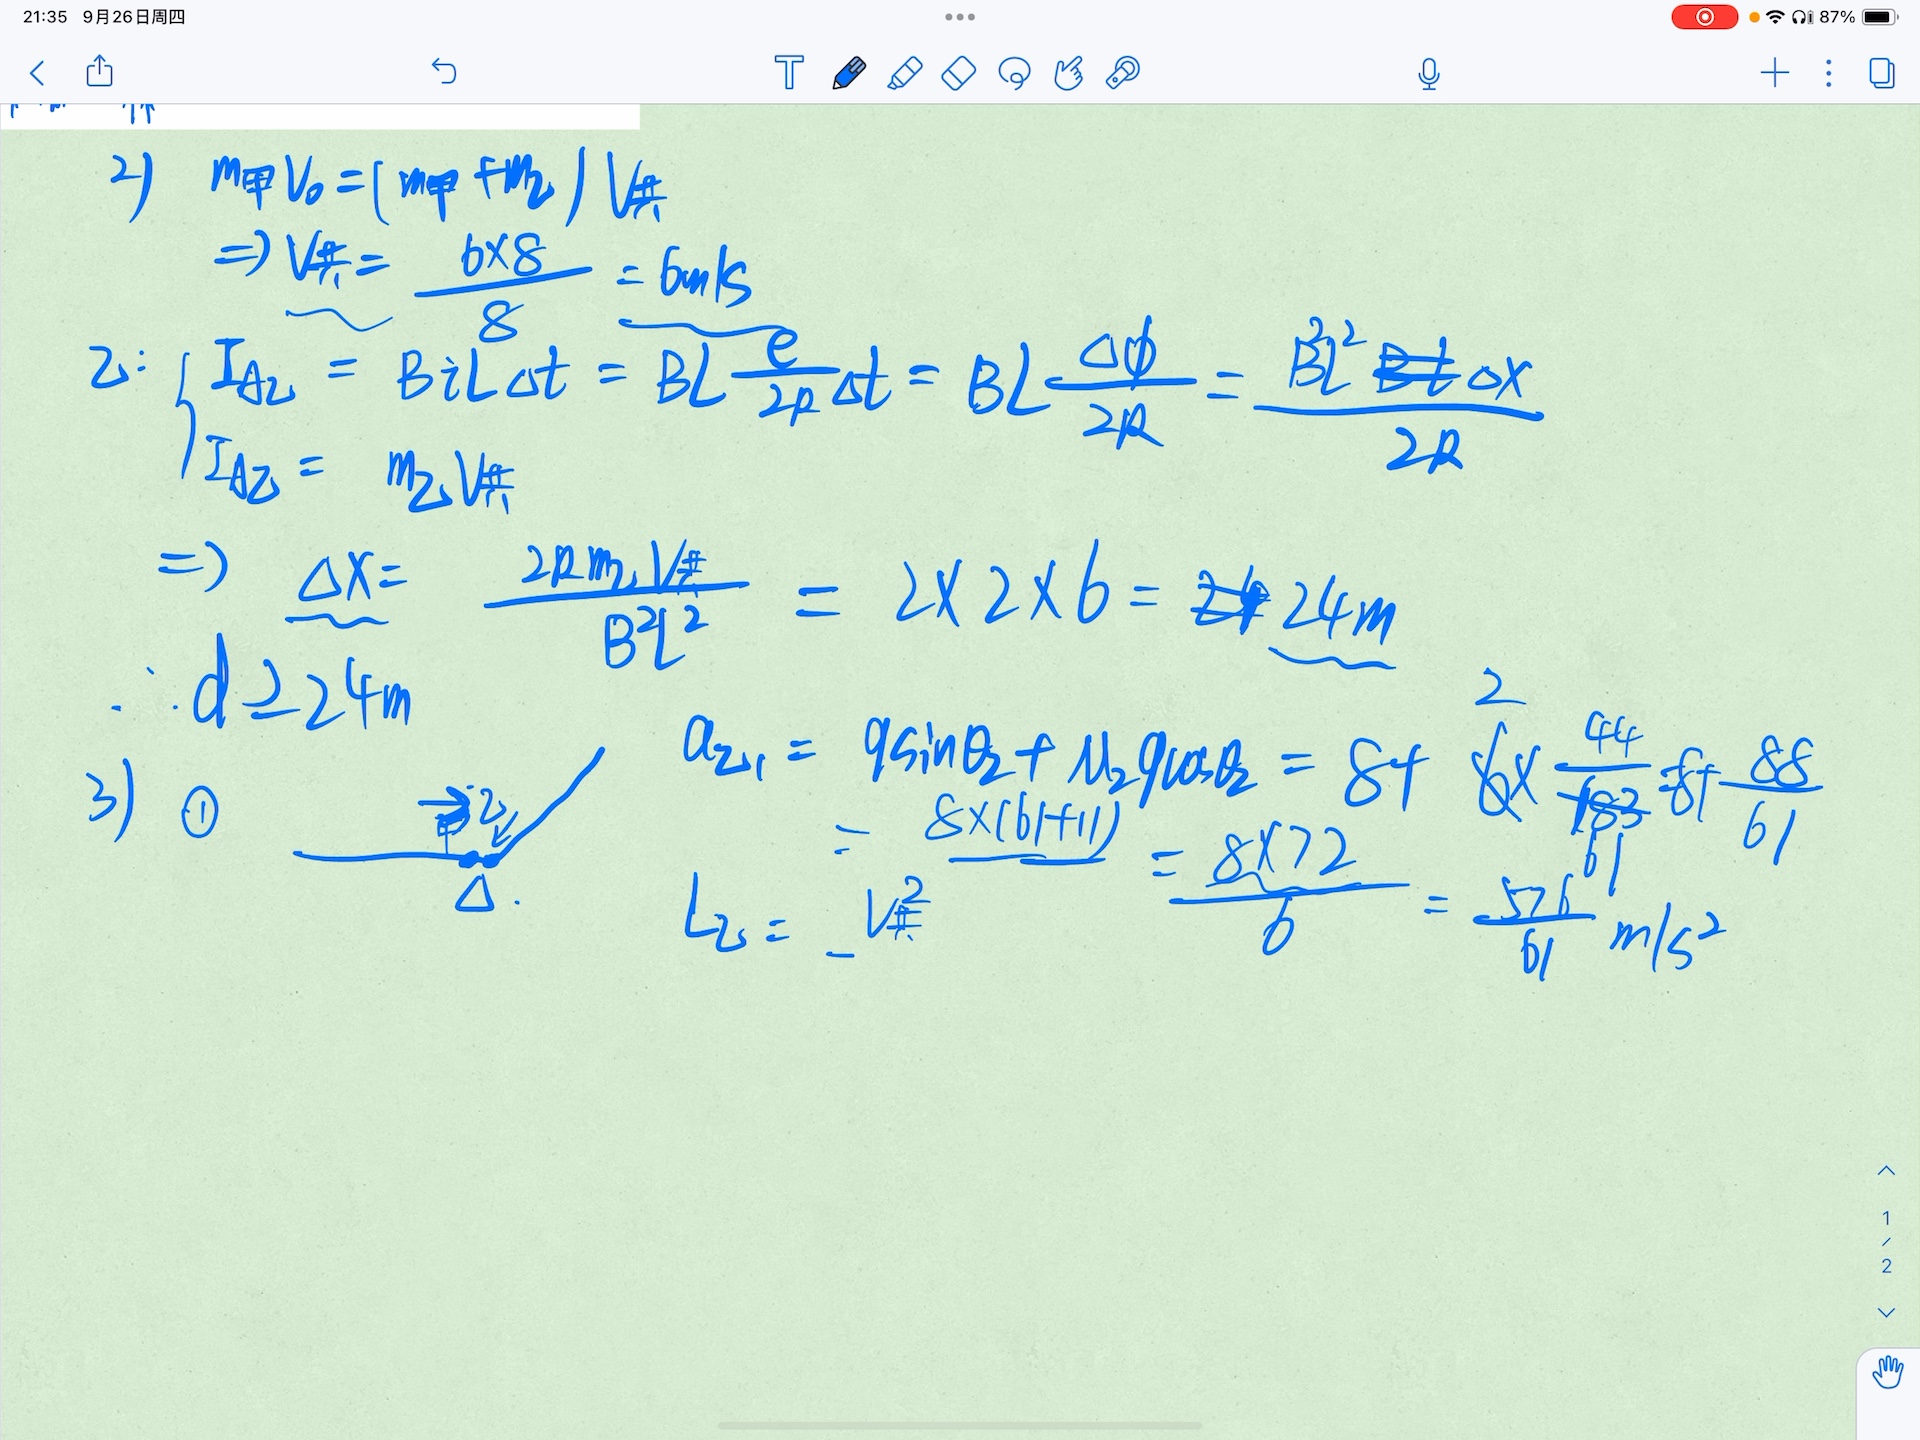 21:35 9月26日周四
87%
2) m甲V₀=(m甲+m乙)V共
=) V共= 6×8/8 = 6m/s
乙: I_A乙 = BiLΔt = BL e/2R Δt = BL Δφ/2R = B²L²Δx/2R
I_A乙 = m乙V共
=) Δx= 2Rm乙V共/B²L² = 2×2×6 = 24m
∴ d≥24m
3) ①
乙
Δ.
a乙₁ = gsinθ₂+μ₂gcosθ₂ = 8+ 6× 44/183 =8+ 88/61
2
61
= 8×(61+11) = 8×72/6 = 576/61 m/s²
L乙 = V共²
1
/
2